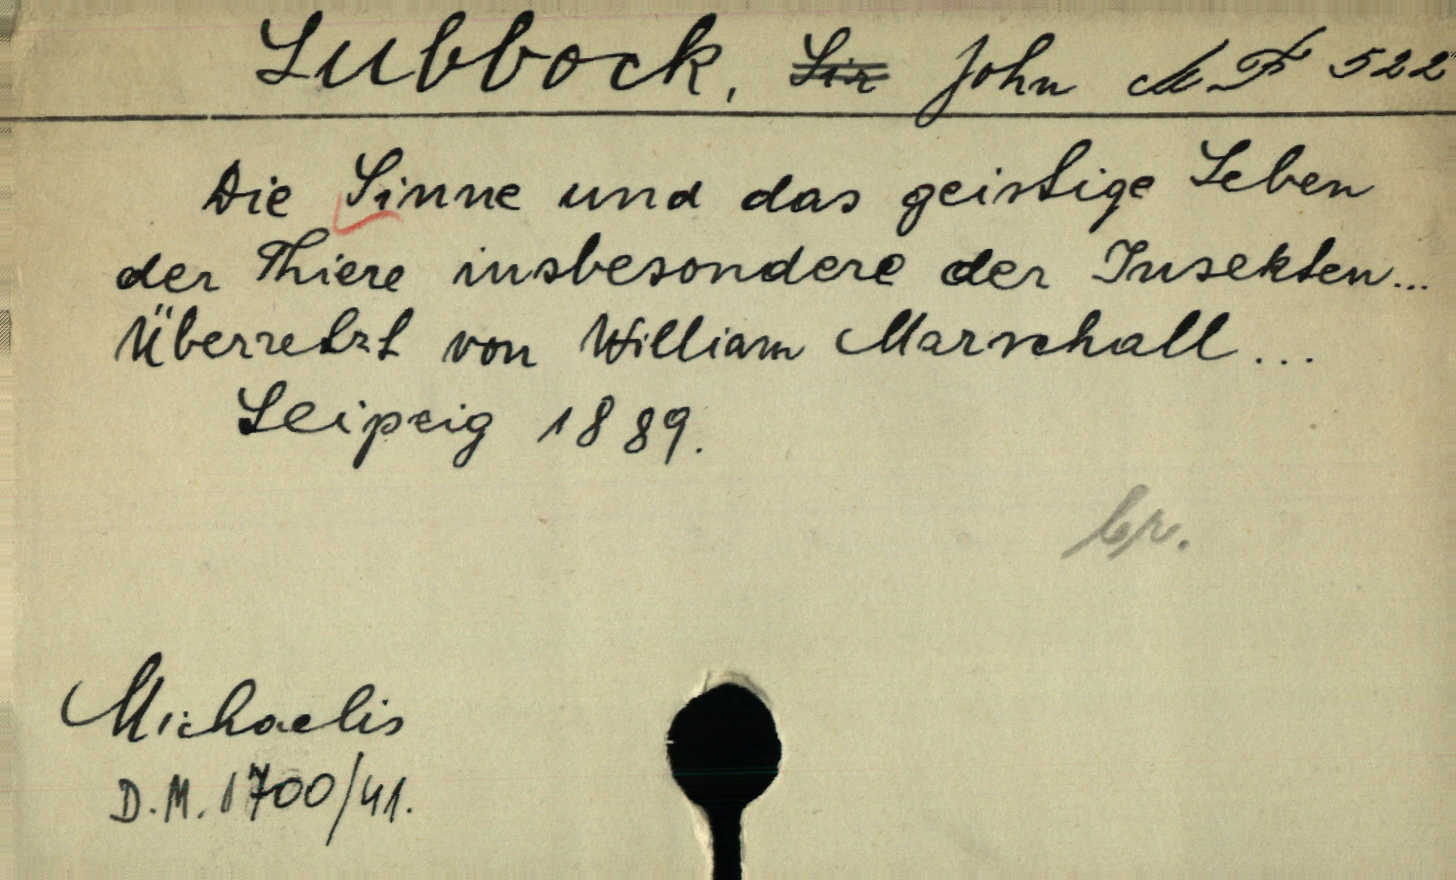 Lubbock, Sir John M F 522
Die Sinne und das geistige Leben
der Thiere insbesondere der Insekten...
Übersetzt von William Marschall...
Leipzig 1889.
Michaelis
D.M. 1700/41.